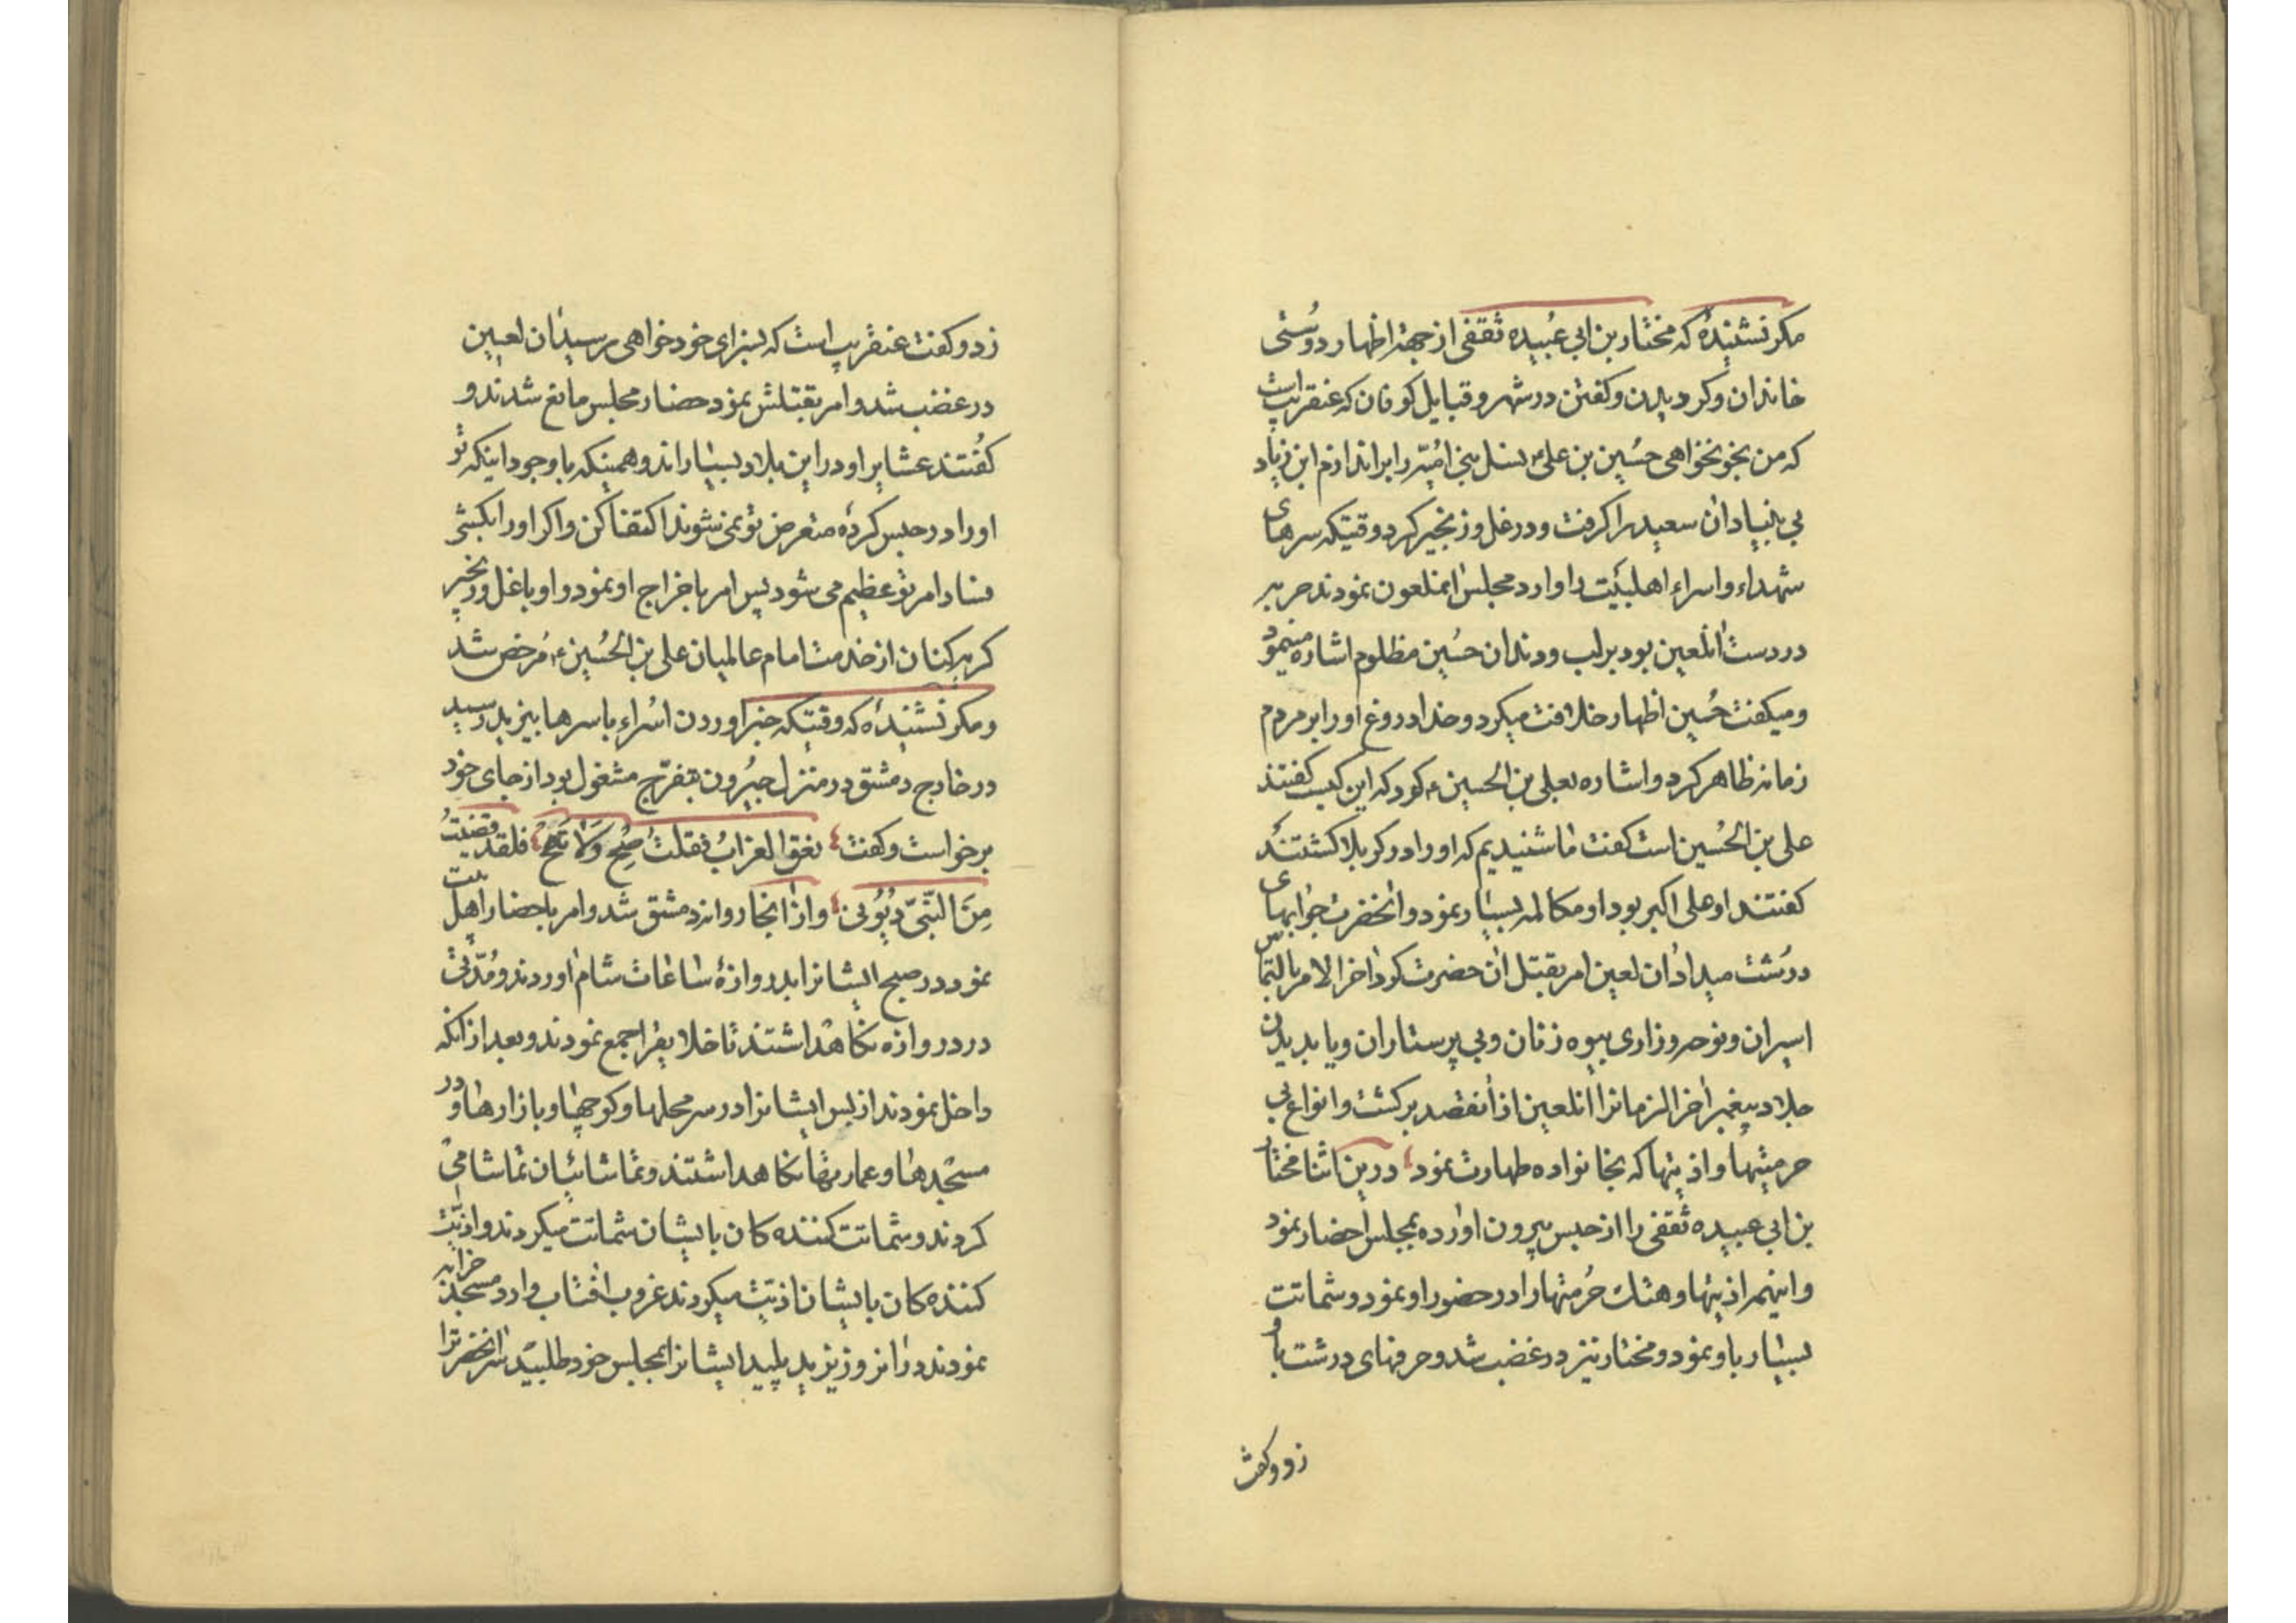 مکر نشنیدهٔ که مختار بن ابی عُبیده ثقفی از جهة اظهار دوستی
خاندان وکردیدن وکفتن در شهر و قبایل کوفان که عنقریب است
که من بخونخواهی حسین بن علی؏ نسل بنی امیّه را براندازم ابن زیاد
بی بنیاد ان سعید را کرفت و در غل و زنجیر کرد و قتیکه سرهای
شهداء و اسراء اهلبیت را وارد مجلس انملعون نمودند حربه
در دست انلعین بود بر لب و دندان حسین مظلوم اشاره مینمود
و میکفت حُسین اظهار خلافت میکرد و خدا دروغ او را بر مردم
زمانه ظاهر کرد و اشاره بعلی بن الحسین؏ کود که این کیست کفتند
علی بن الحُسین است کفت ما شنیدیم که او را در کربلا کشتند
کفتند او علی اکبر بود او مکالمه بسیار نمود و انحضرت جوابهای
درُشت میداد ان لعین امر بقتل ان حضرت کود اخر الامر بالتماس
اسیران و نوحه و زاری بیوه زنان و بی پرستاران و یا بدیدن
جلاد پیغمبر اخر الزمانرا انلعین از انقصد برکشت و انواع بی
حرمتیها و اذیتها که بخانواده طهارت نمود در ین اثنا مختار
بن ابی عبیده ثقفی را از حبس بیرون اورده بمجلس احضار نمود
و اینهمه اذیتها و هتک حُرمتها را در حضور او نمود و شماتت
بسیار باو نمود و مختار نیز در غضب شد و حرفهای درشت باو
زد و کفت
زد و کفت عنقریب است که بسزای خود خواهی رسید ان لعین
در غضب شد و امر بقتلش نمود حضار مجلس مانع شدند و
کفتند عشایر او در این بلاد بسیاراند و همینکه با وجود اینکه تو
او را در حبس کرده متعرض تو نمی شوند اکتفا کن و اکر او را بکشی
فساد امر تو عظیم می شود پس امر باخراج او نمود و او با غل و زنجیر
کریه کنان از خدمت امام عالمیان علی بن الحُسین؏ مُرخص شد
و مکر نشنیدهٔ که وقتیکه خبر اوردن اسُراء با سرها بیزید رسید
در خارج دمشق در منزل جیرُون بتفرّج مشغول بود از جای خود
برخواست و کفت نعق الغراب فقلت صِح وَلا تَصِح فلقد قضیتُ
مِنَ النّبیّ دُیُونی و از انجا روانه دمشق شد و امر باحضار اهل بیت
نمود در صبح ایشانرا بدروازهٔ ساعات شام اوردند و مُدّتی
در دروازه نکاهداشتند تا خلایق را جمع نمودند و بعد از انکه
داخل نمودند از پس ایشانرا در سر محلها و کوچها و بازارها و در
مسجدها و عمارتها نکاهداشتند و تماشائیان تماشا می
کردند و شماتت کننده کان بایشان شماتت میکردند و اذیّت
کننده کان بایشان اذیّت میکردند غروب افتاب وارد مسجد خرابه
نمودند در انروز یزید پلید ایشانرا بمجلس خود طلبید سر انحضرترا